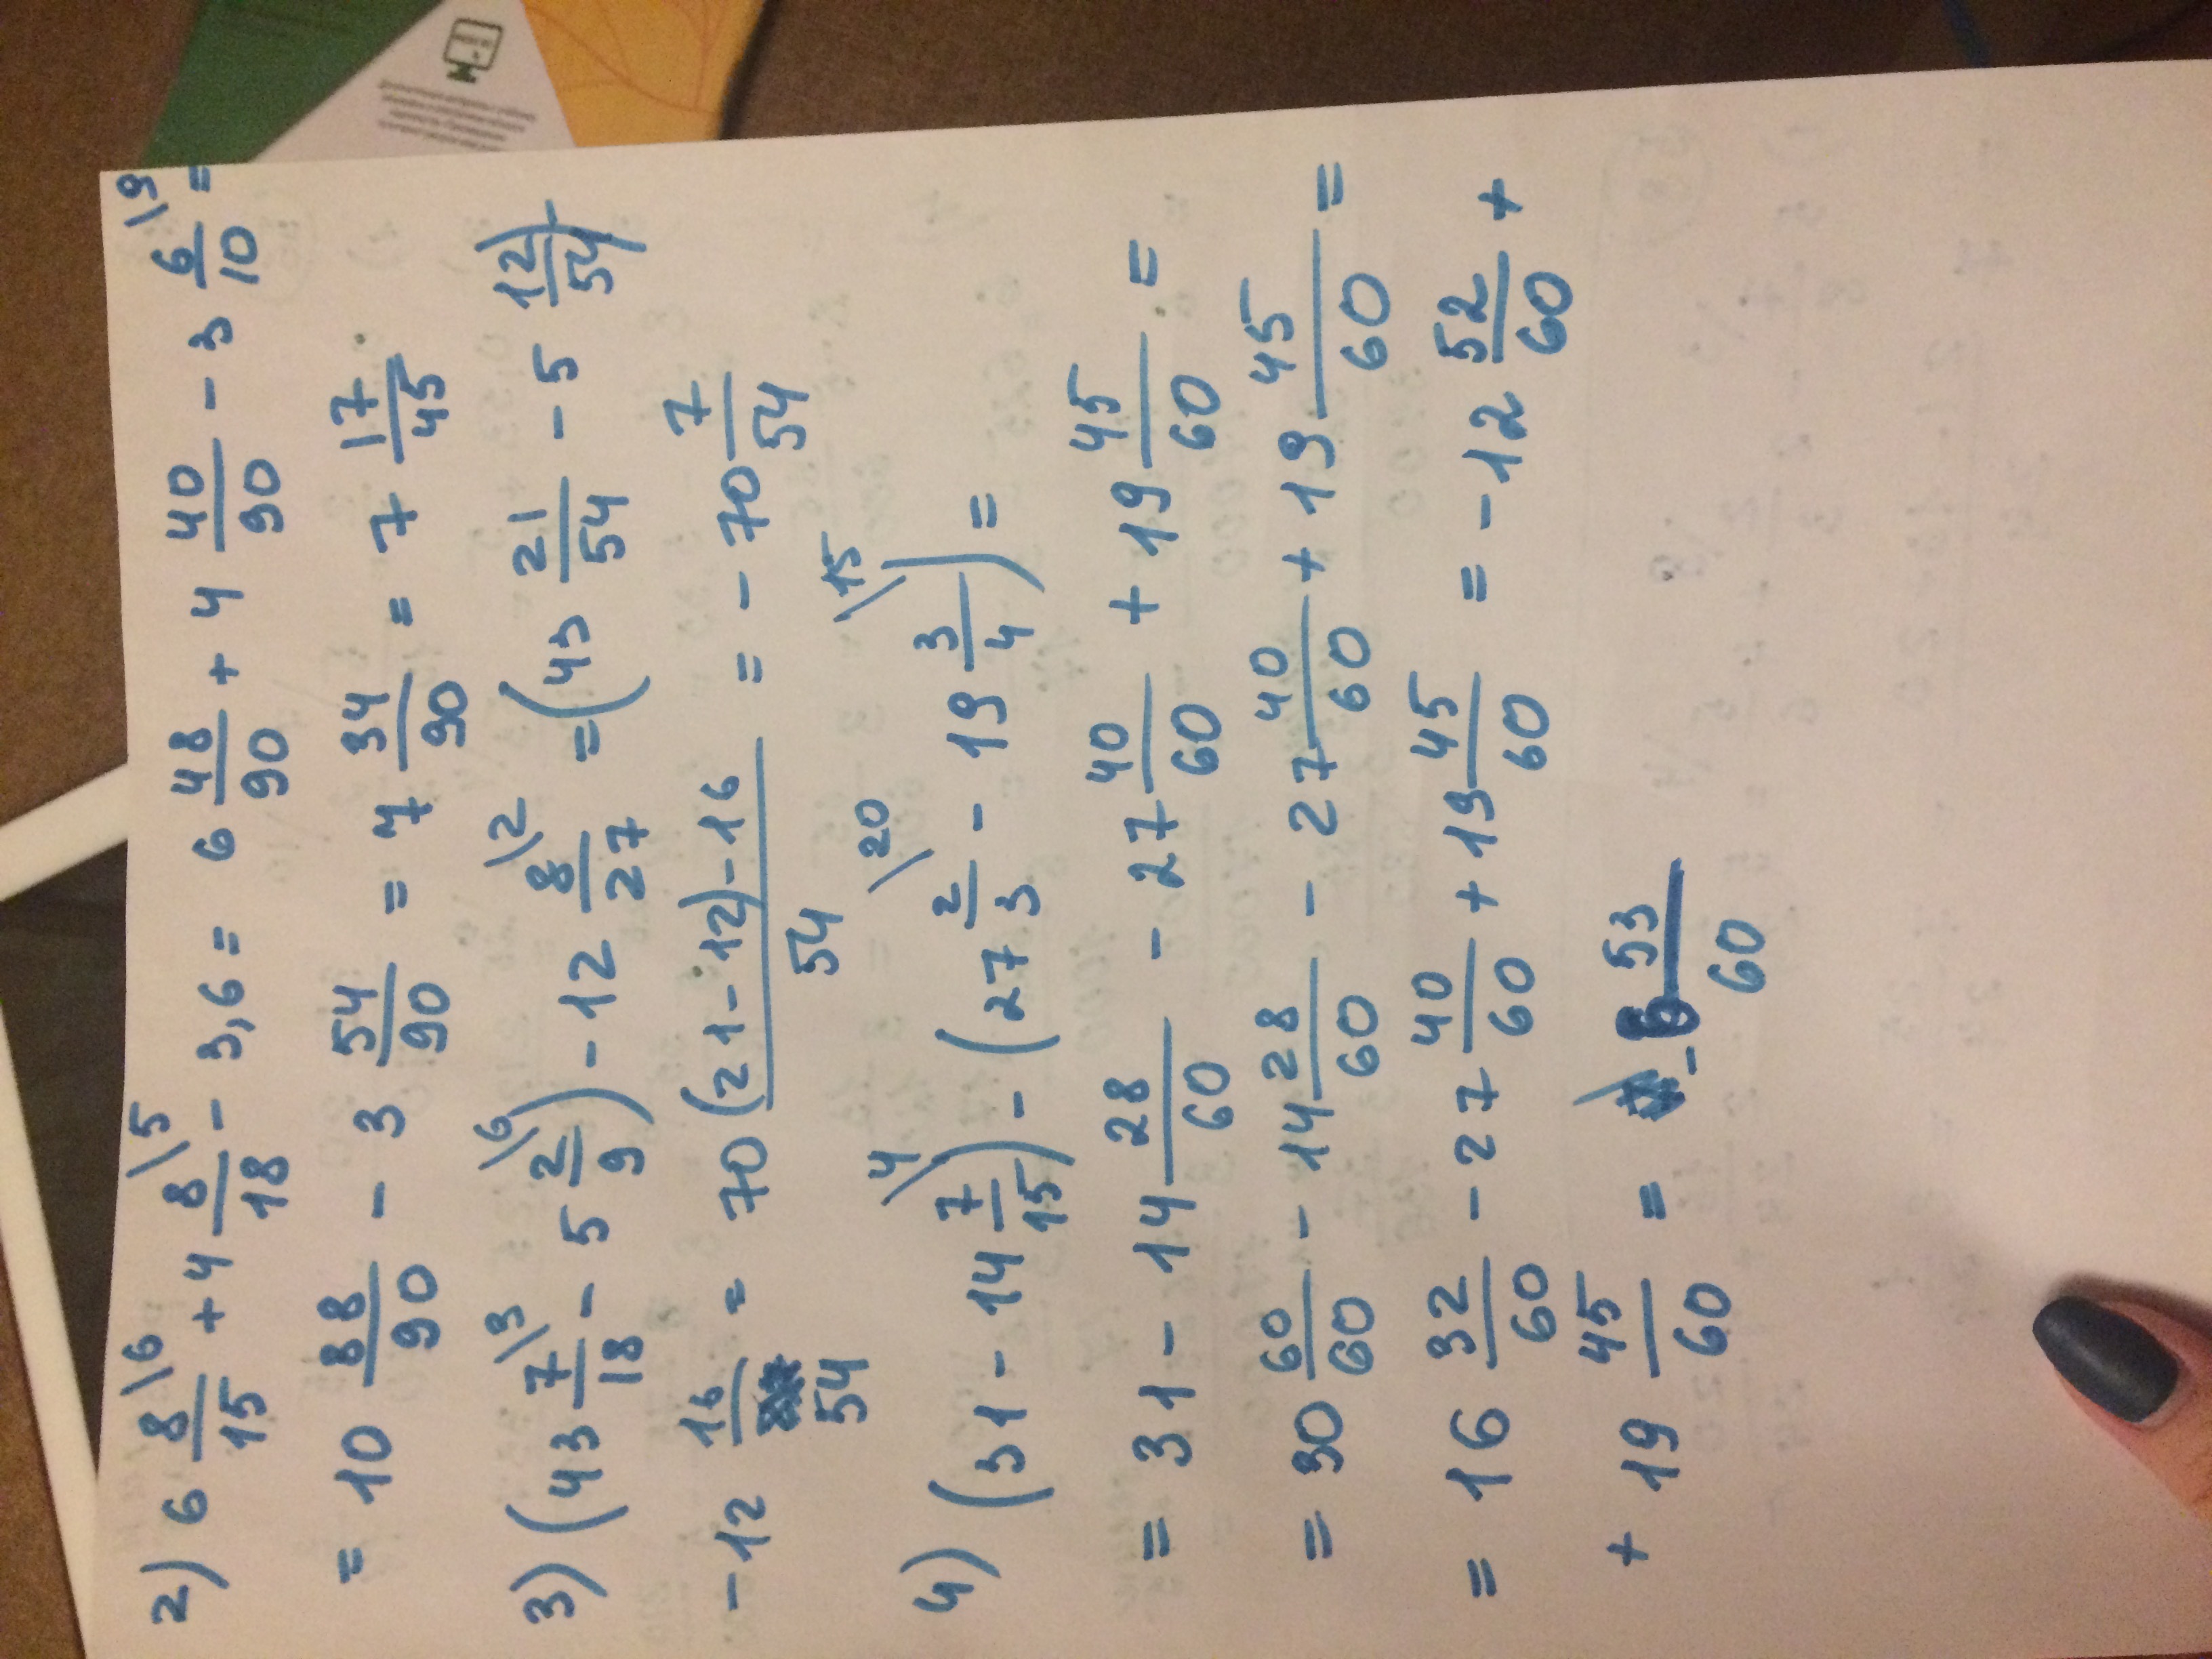 2) 6 8/15 \6 + 4 8/18 \5 - 3,6 = 6 48/90 + 4 40/90 - 3 6/10 \9 =
= 10 88/90 - 3 54/90 = 7 34/90 = 7 17/45
3) (43 7/18 \3 - 5 2/9 \6) - 12 8/27 \2 = (43 21/54 - 5 12/54) -
- 12 16/54 = 70 (21-12)-16/54 = - 70 7/54
4) (31 - 14 7/15 \4) - (27 2/3 \20 - 19 3/4 \15) =
= 31 - 14 28/60 - 27 40/60 + 19 45/60 =
= 30 60/60 - 14 28/60 - 27 40/60 + 19 45/60 =
= 16 32/60 - 27 40/60 + 19 45/60 = - 12 52/60 +
+ 19 45/60 = - 6 53/60